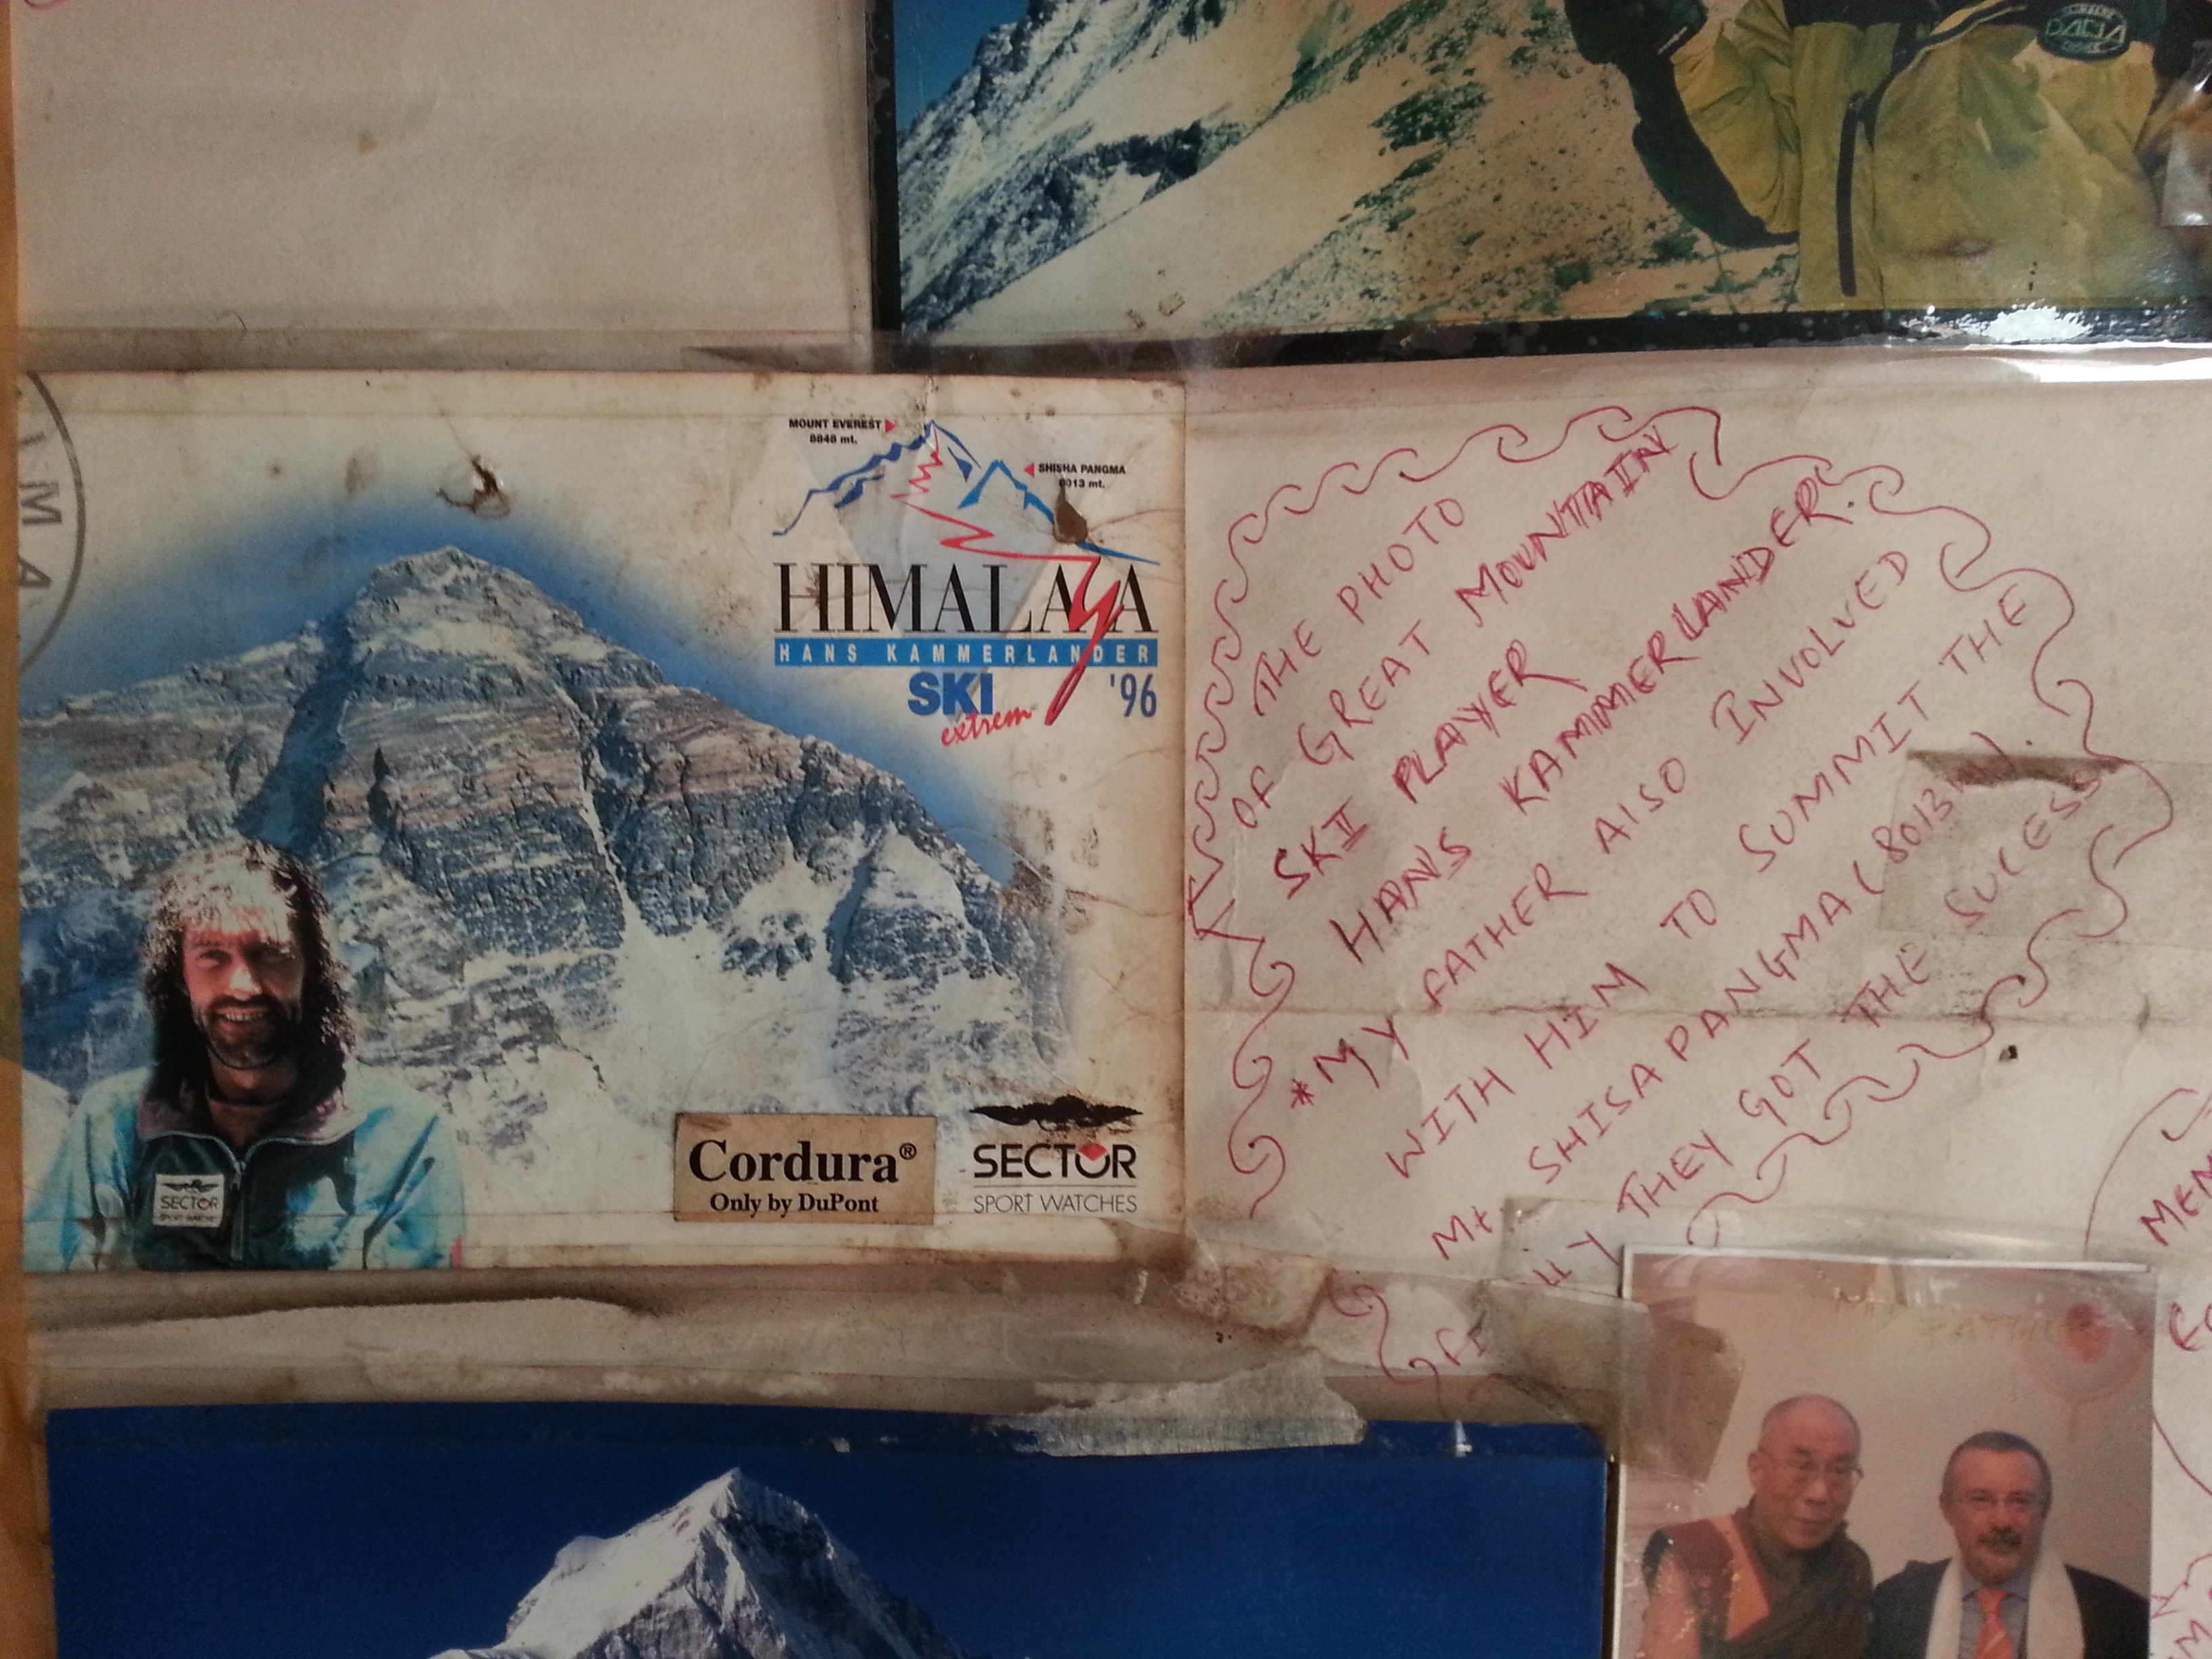 DATJA
MOUNT EVEREST
8848 mt.
SHISHA PANGMA
8013 mt.
HIMALAYA
HANS KAMMERLANDER
SKI '96
extrem
Cordura®
Only by DuPont
SECTOR
SPORT WATCHES
SECTOR
SPORT WATCHES
THE PHOTO
OF GREAT MOUNTAIN
SKI PLAYER
HANS KAMMERLANDER.
*MY FATHER ALSO INVOLVED
WITH HIM TO SUMMIT THE
Mt SHISAPANGMA (8013 M).
THEY GOT THE SUCESS
MEN